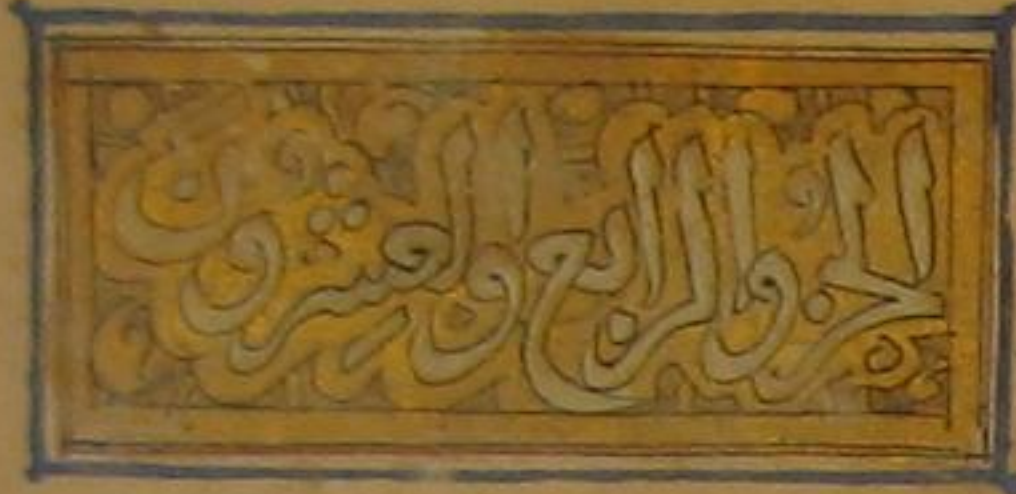 الجزو الرابع والعشرون